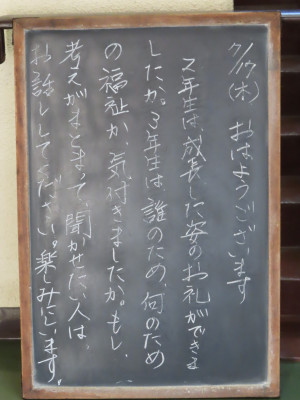 (木) おはようございます
2年生は成長した姿のお礼ができま
したか。3年生は、誰のため、何のため
の福祉か、気付きましたか。もし、
考えがまとまって、聞かせたい人は、
お話ししてください。楽しみにいます。